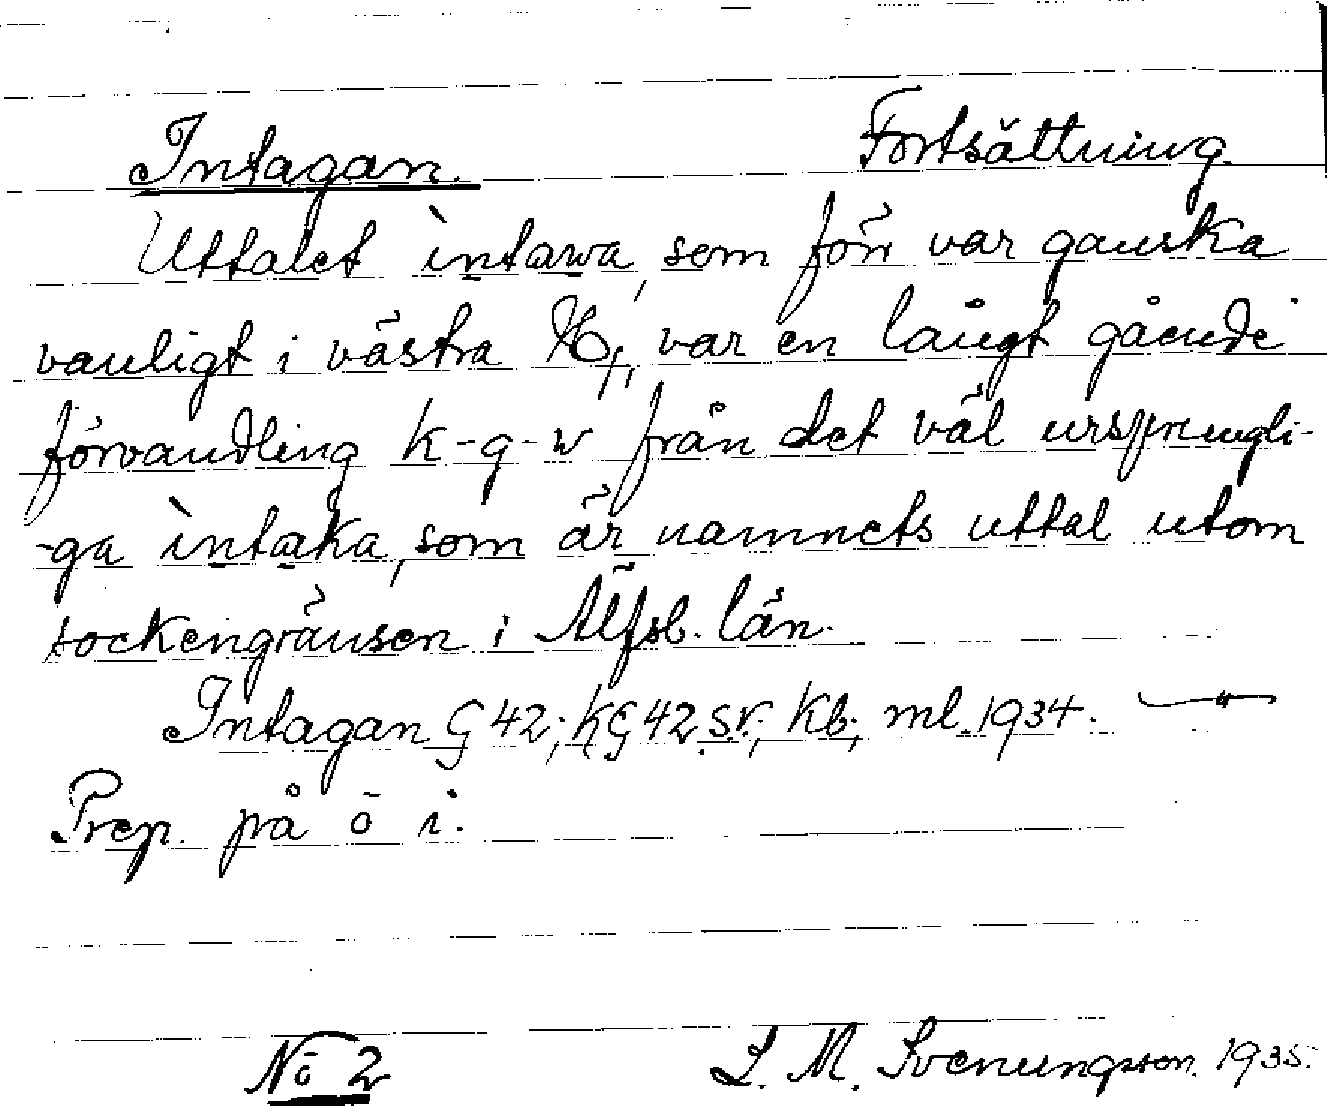 Intagan. Fortsättning
Uttalet ìntawa, som förr var ganska
vanligt i västra Hj., var en långt gående
förvandling k-g-w från det väl ursprungli-
-ga ìntaka, som är namnets uttal utom
sockengränsen i Älfsb. län.
Intagan G 42; KG 42 s.v.; Kb; ml. 1934.
Prep. på o i.
No 2 L. M. Svenungsson. 1935.